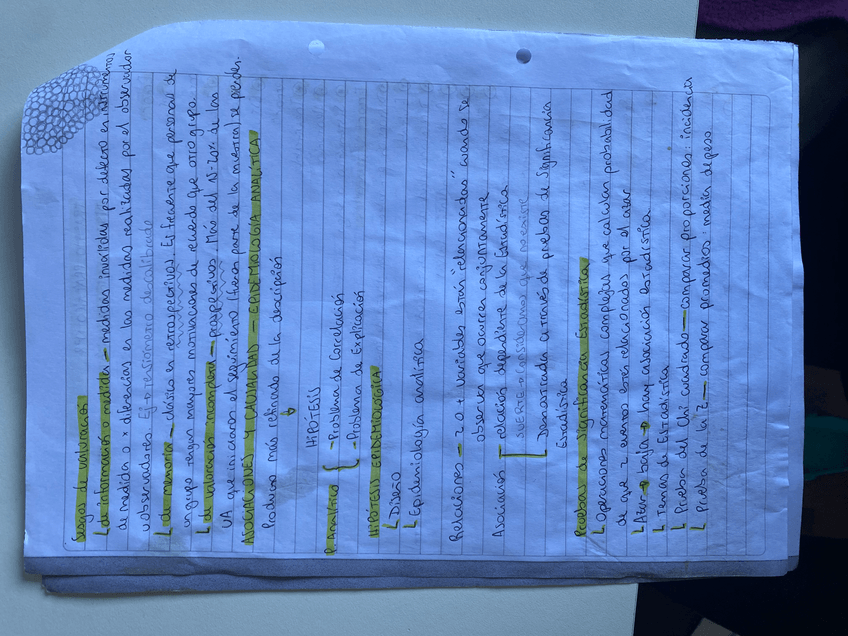 Sesgos de valoración
↳ de información o medición — medidas inválidas por defecto en instrumentos
de medida o x diferencias en las medidas realizadas por el observador
u observadores. Ej → tensiómetro descalibrado
↳ de memoria — clásico en retrospectivos. Ej frecuente que personas de
un grupo tengan mayores motivaciones de recuerdo que otro grupo.
↳ de valoración incompleta — prospectivos. Más del 15-20% de las
UA que iniciaron el seguimiento (fueron parte de la muestra) se pierden.
ASOCIACIONES Y CAUSALIDAD — EPIDEMIOLOGÍA ANALÍTICA
Producto más refinado de la descripción
↓
HIPÓTESIS
P. Analítico { - Problema de Correlación
- Problema de Explicación
HIPÓTESIS EPIDEMIOLÓGICA
↳ Diseño
↳ Epidemiología analítica
Relaciones — 2 o + variables están "relacionadas" cuando se
observan que ocurren conjuntamente
Asociación — relación dependiente de la Estadística
SUERTE → consideramos que no existe
Demostrada a través de pruebas de Significancia
Estadística
Pruebas de Significancia Estadística
↳ Operaciones matemáticas complejas que calculan probabilidad
de que 2 eventos estén relacionados por el azar
↳ Azar → baja → hay asociación estadística
↳ Temas de Estadística
↳ Prueba del Chi cuadrado — comparar proporciones: incidencia
↳ Prueba de la Z — comparar promedios: media de peso